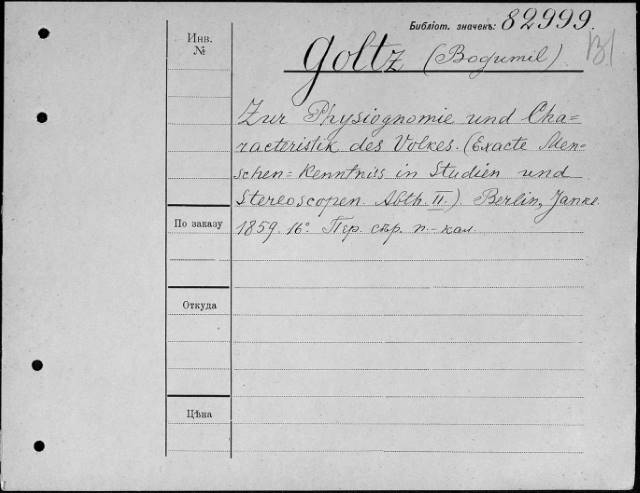 Библіот. значекъ: 82999.
Инв. №
Goltz (Bogumil)
Zur Physiognomie und Cha=
racteristik des Volkes. (Exacte Men=
schen=Kenntniss in Studien und
Stereoscopen. Abth. II.) Berlin, Janke.
По заказу
1859. 16° Пер. сѣр. п.-кол.
Откуда
Цѣна